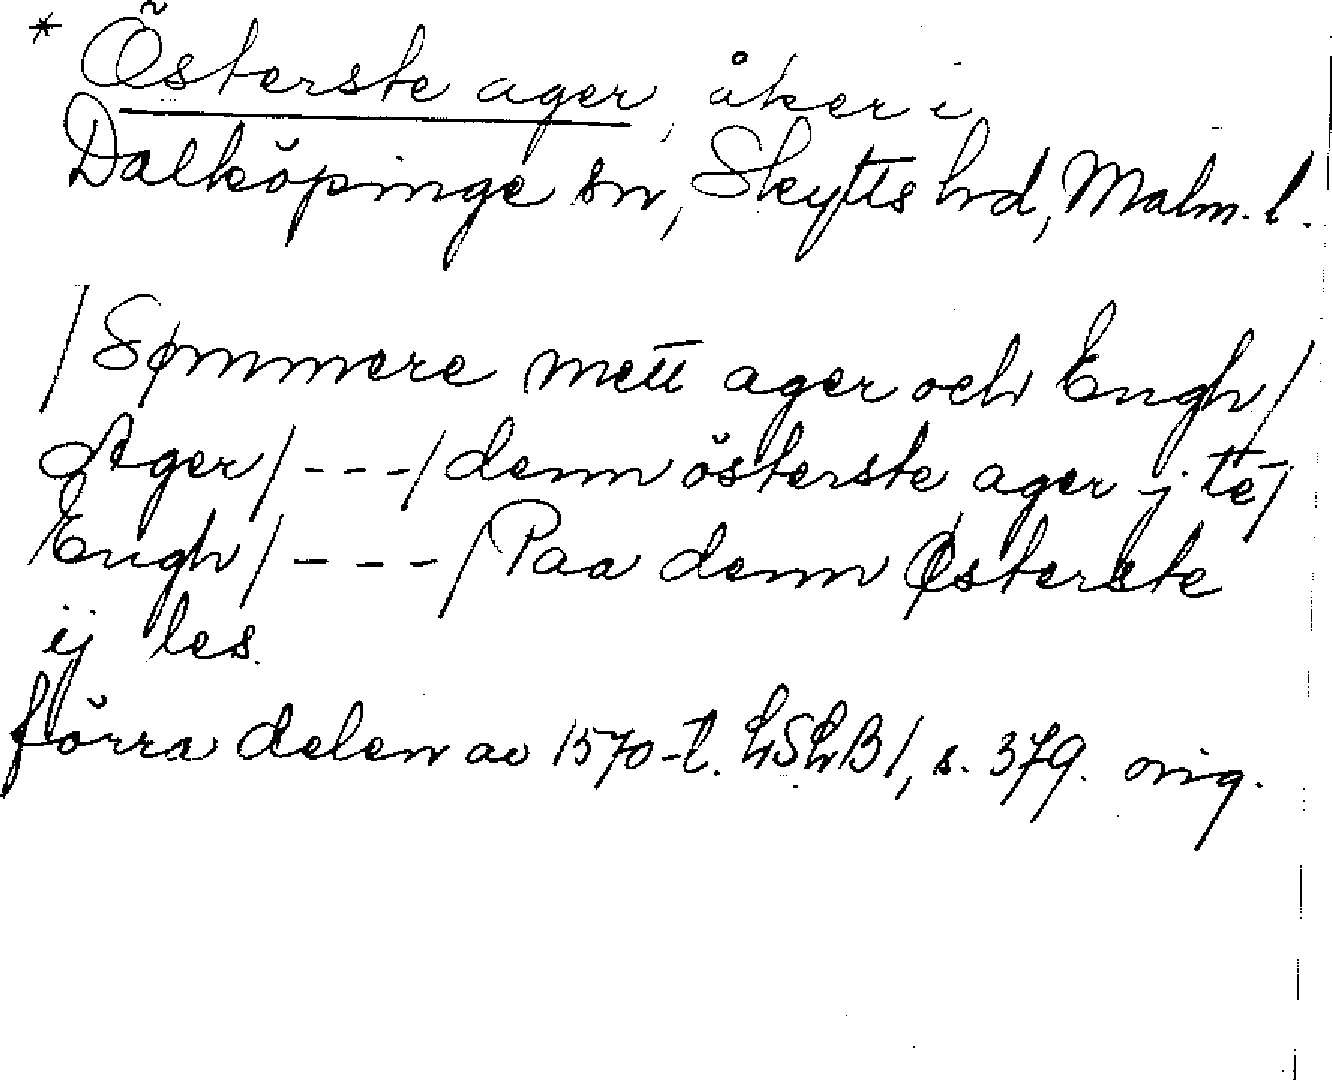 * Österste ager, åker i
Dalköpinge sn, Skytts hd, Malm. l.
/Sømmere mett ager och Engh/
Ager/---/denn österste ager j te/
Engh/----/Paa denn Østerste
ij les.
förra delen av 1570-t. LSLB1, s. 379. orig.